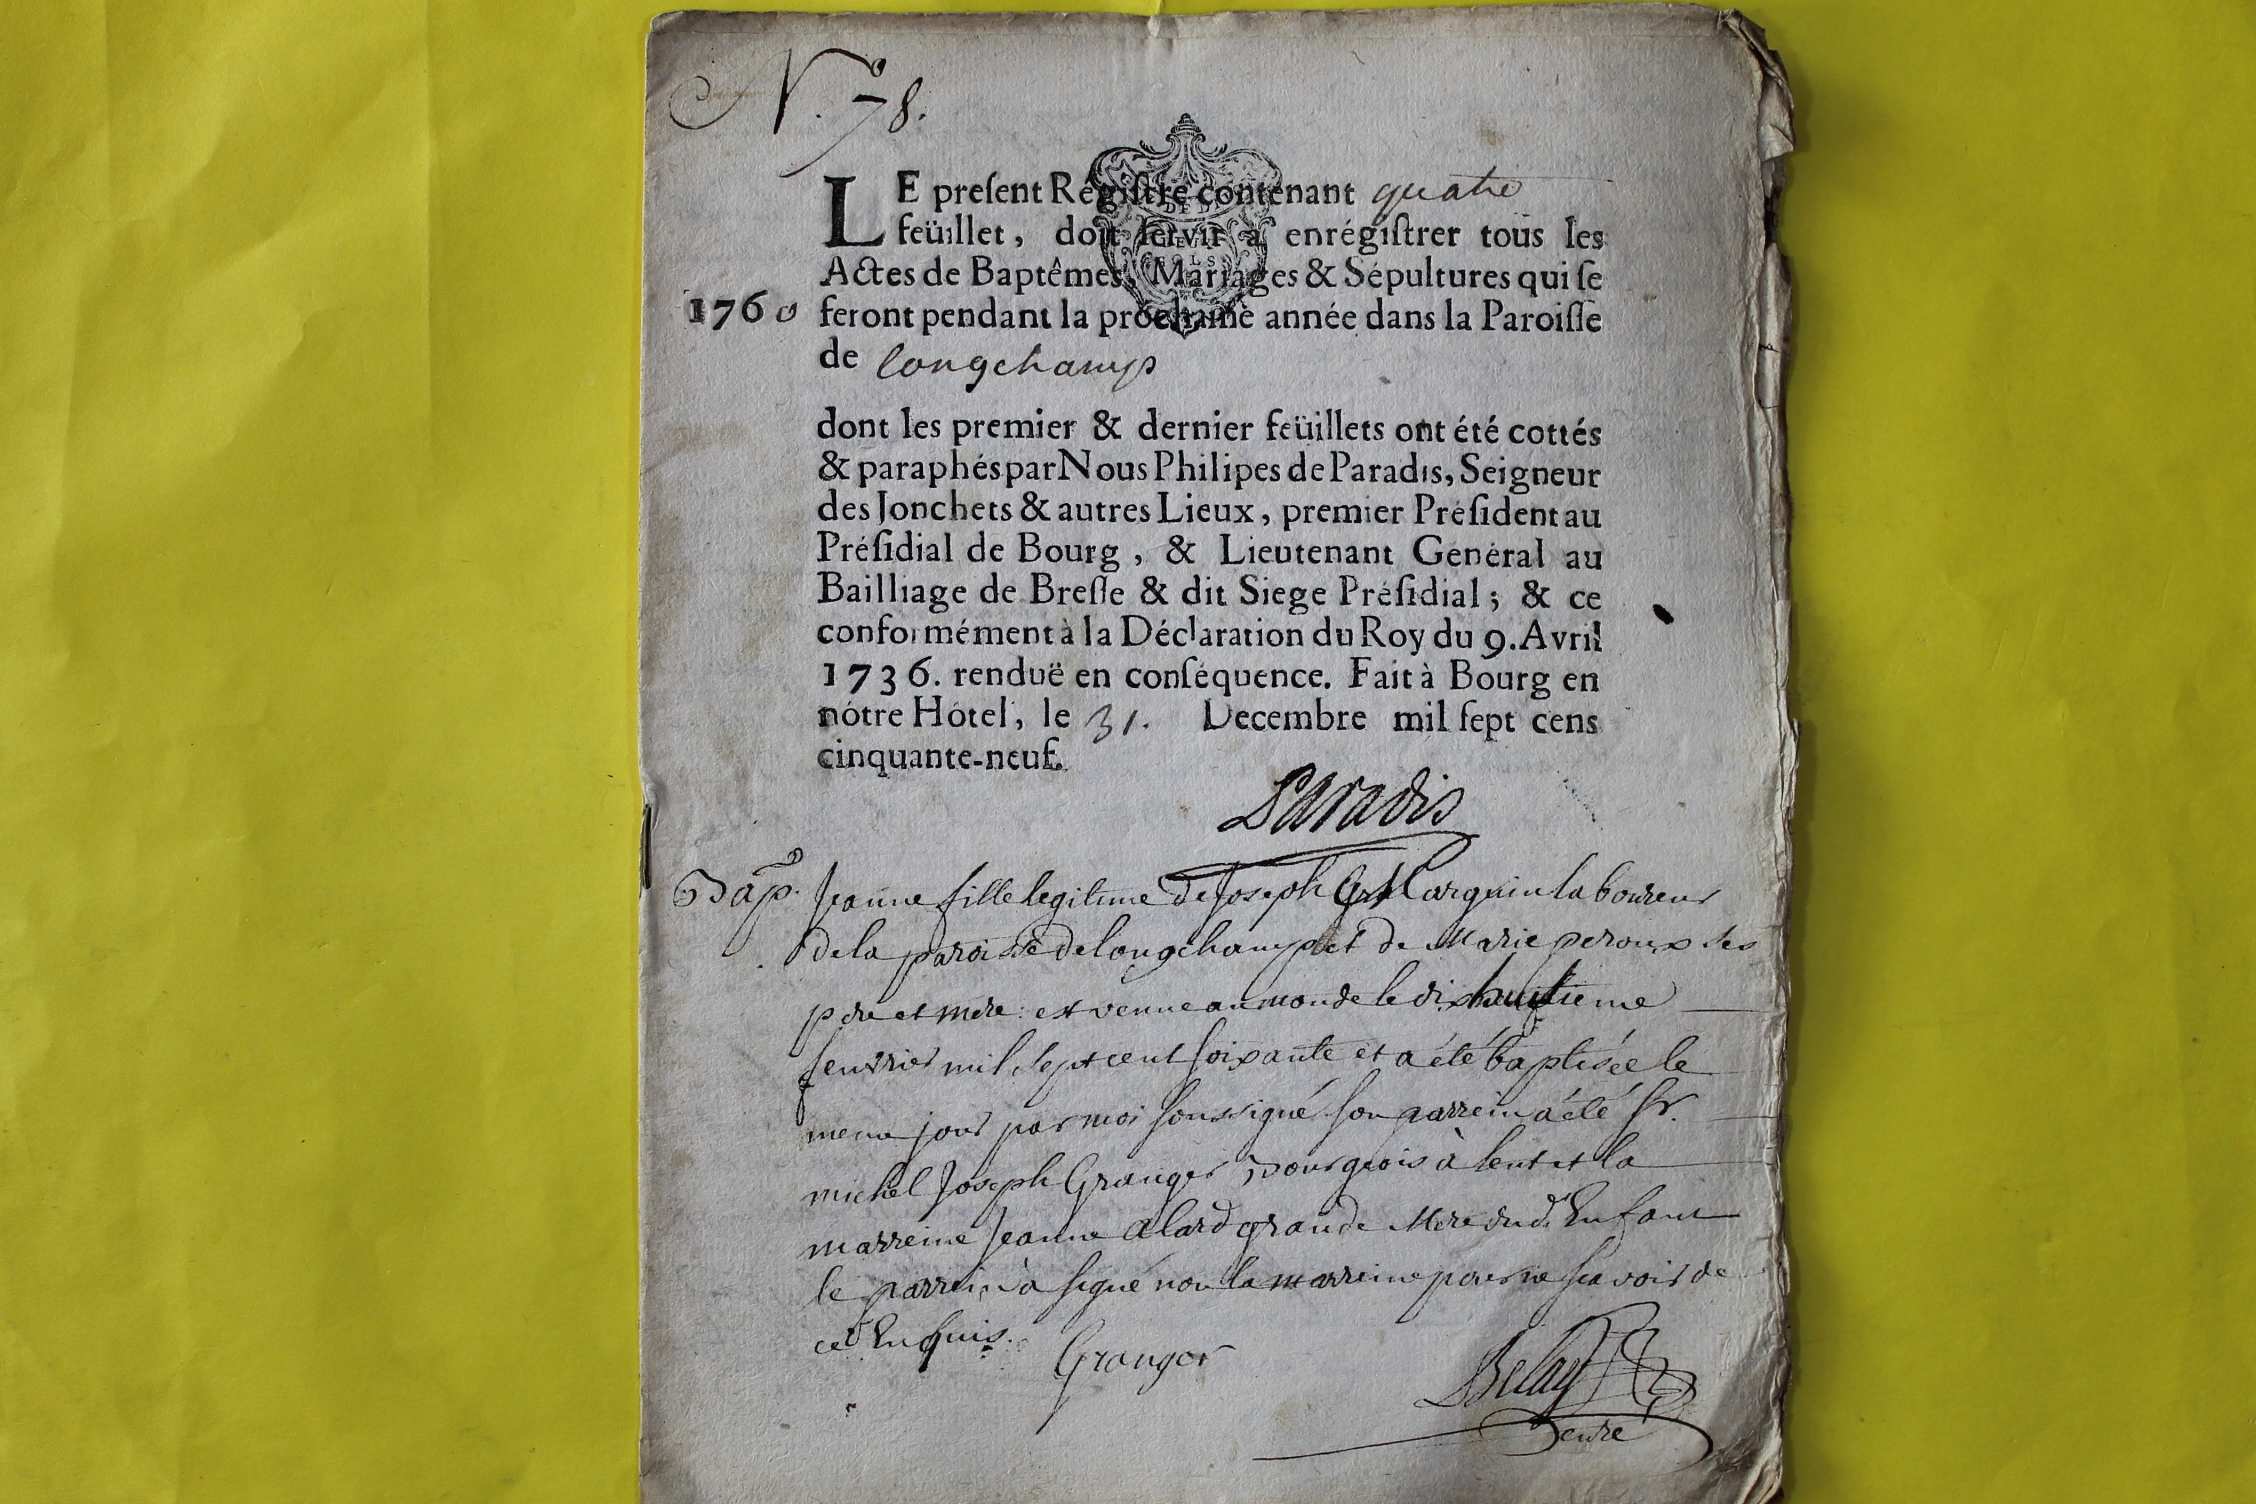 N.° 78.
LE preſent Régiſtre contenant quatre
feüillet, doit ſervir à enrégiſtrer tous les
Actes de Baptêmes, Mariages & Sépultures qui ſe
1760 feront pendant la prochaine année dans la Paroiſſe
de longchamp
dont les premier & dernier feüillets ont été cottés
& paraphés par Nous Philipes de Paradis, Seigneur
des Jonchets & autres Lieux, premier Préſident au
Préſidial de Bourg, & Lieutenant Général au
Bailliage de Breſſe & dit Siege Préſidial; & ce
conformément à la Déclaration du Roy du 9. Avril
1736. renduë en conſéquence. Fait à Bourg en
nôtre Hôtel, le 31. Decembre mil ſept cens
cinquante-neuf.
Paradis
Bap. Jeanne fille legitime de Joseph Marguin laboureur
de la paroisse de longchamp et de Marie peroux ses
pere et mere: est venue au monde le dixhuitieme
feuvrier mil sept cent soixante et a été baptisée le
meme jour par moi soussigné son parrein a été sr.
michel Joseph Granger Bourgeois à lent et la
marreine Jeanne alard grande Mere dud. Enfant
le parrein a signé non la marreine pour ne scavoir de
ce Enquis.
Granger
Belay
Curé